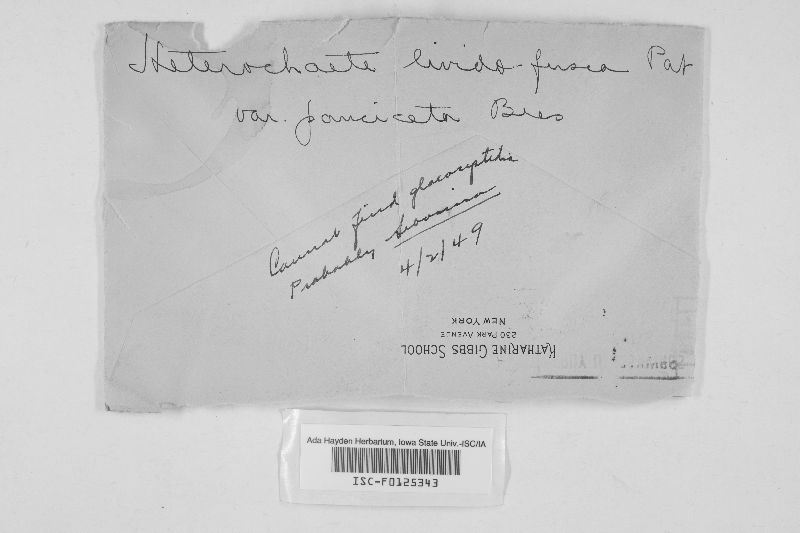 Heterochaete livido-fusca Pat
var. pauciceta Bres
Cannot find gloeocystidia
Probably
4/2/49
KATHARINE GIBBS SCHOOL
230 PARK AVENUE
NEW YORK
Ada Hayden Herbarium, Iowa State Univ.-ISC/IA
ISC-F0125343